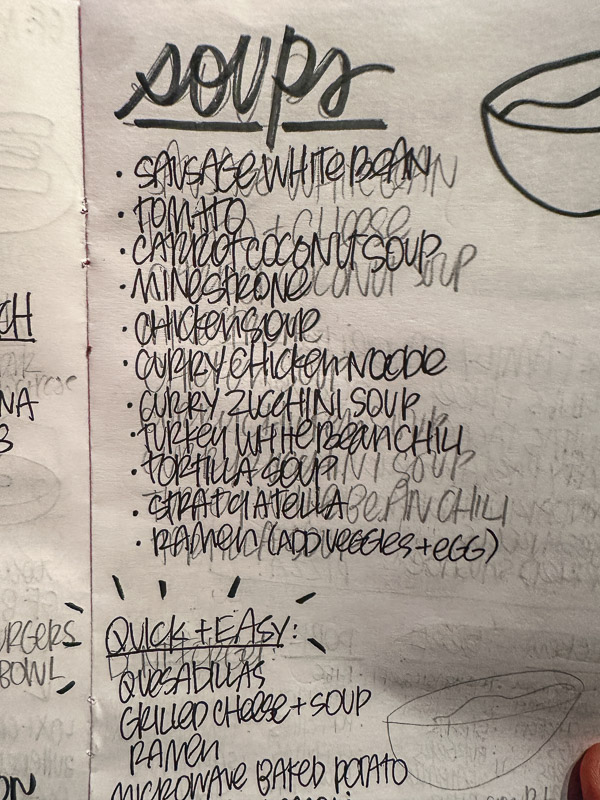 soups
• SAUSAGE WHITE BEAN
• TOMATO
• CARROT COCONUT SOUP
• MINESTRONE
• CHICKEN SOUP
• CURRY CHICKEN NOODLE
• CURRY ZUCCHINI SOUP
• TURKEY WHITE BEAN CHILI
• TORTILLA SOUP
• STRATCIATELLA
• RAMEN (ADD VEGGIES + EGG)
QUICK + EASY:
QUESADILLAS
GRILLED CHEESE + SOUP
RAMEN
MICROWAVE BAKED POTATO